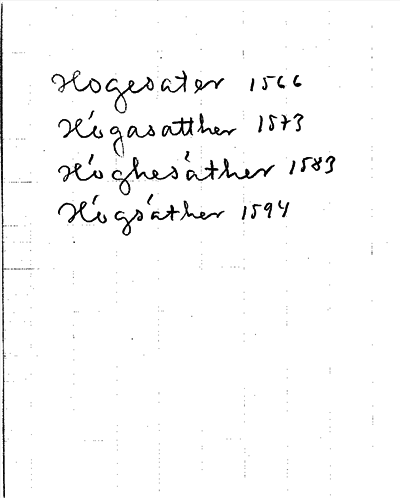 Hogesater 1566
Hógasatther 1573
Hóghesáther 1583
Hógsáther 1594